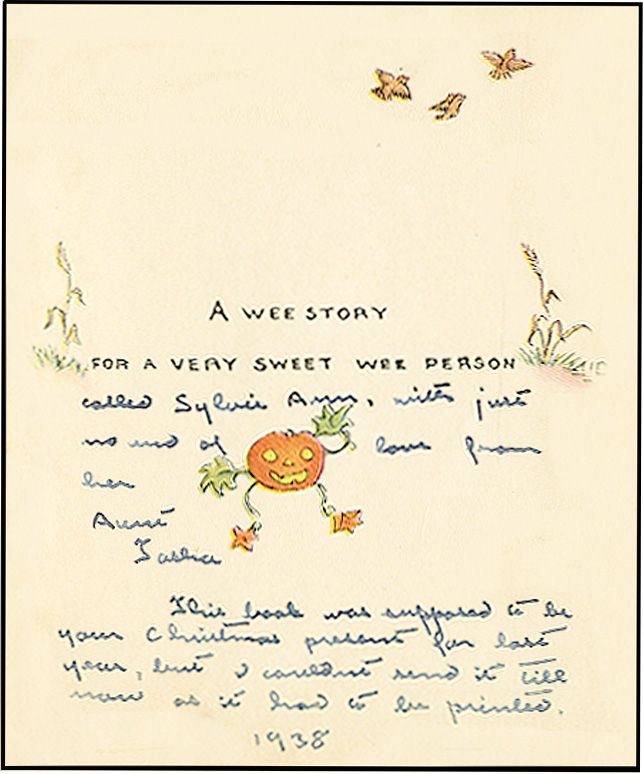 A WEE STORY
FOR A VERY SWEET WEE PERSON
called Sylvie Ann, with just
no end of love from
her
Aunt
Tasha
This book was supposed to be
your Christmas present for last
year, but I couldn't send it till
now as it had to be printed.
1938